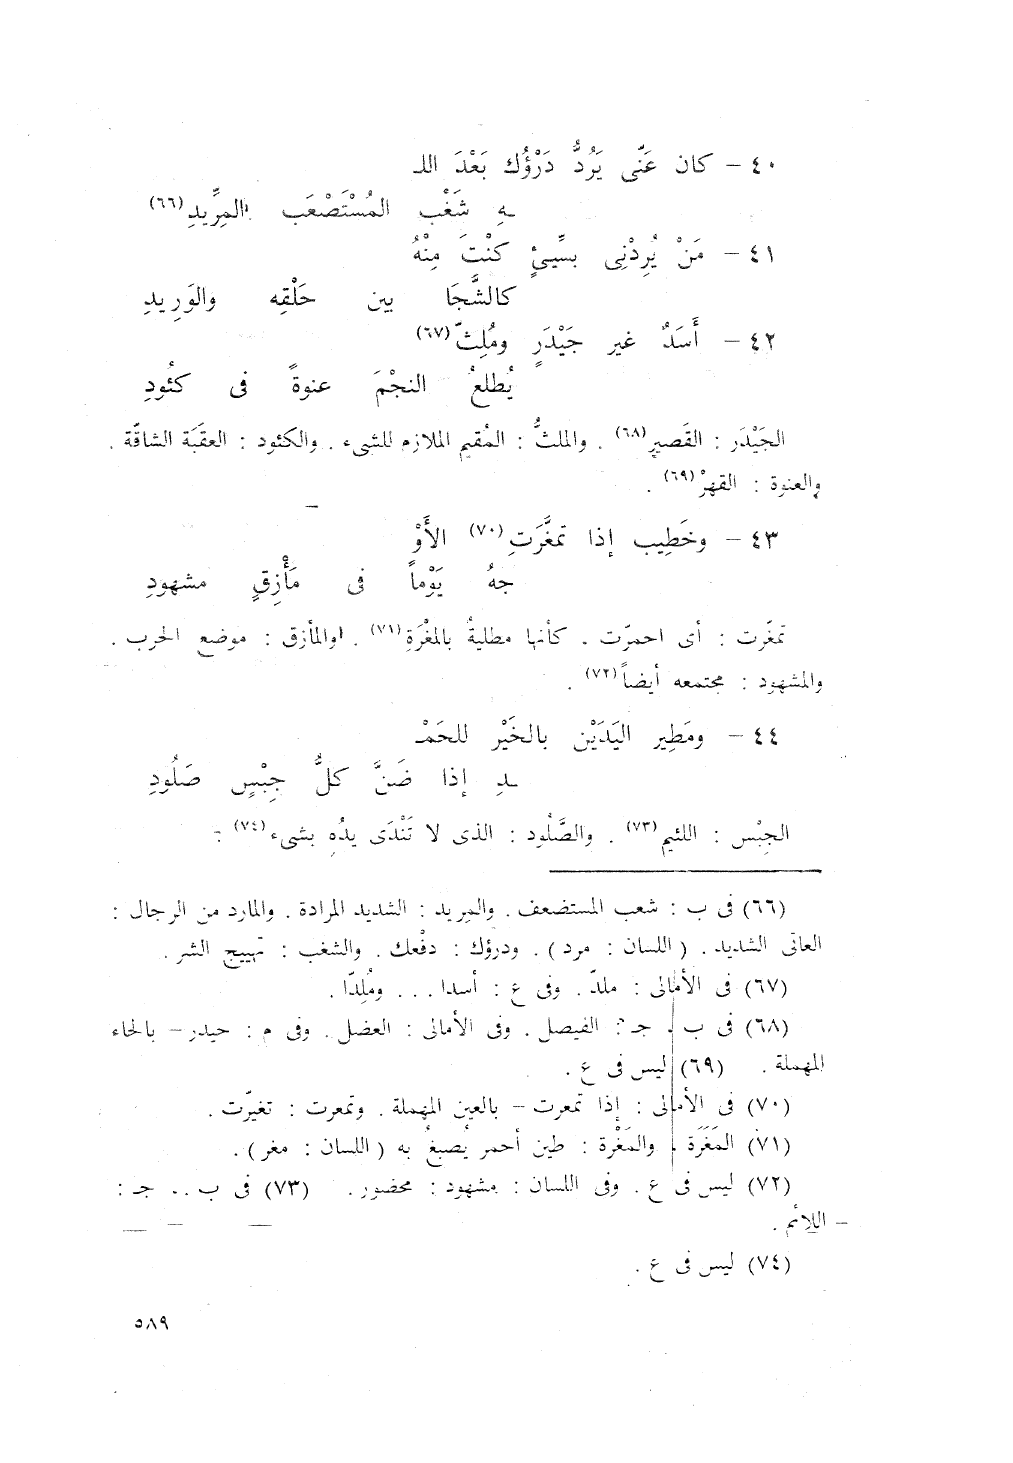 ٤٠ – كان عَنّى يَرُدُّ دَرْؤُك بَعْدَ اللـ
ـهِ شَغْب المُسْتَصْعَب المِرِّيدِ(٦٦)
٤١ – مَنْ يُرِدْنِى بسَّيئٍ كنْتَ مِنْهُ
كالشَّجَا بين حَلْقِه والوَرِيدِ
٤٢ – أَسَدٌ غير جَيْدَرٍ ومُلِثّ(٦٧)
يُطلعُ النجْمَ عنوةً فى كئُودِ
الجَيْدَر : القَصير(٦٨) . والملثُّ : المُقيم الملازم للشىء . والكئود : العقبَة الشاقّة .
والعنوة : القهرْ(٦٩) .
٤٣ – وخَطِيب إذا تمغَّرَتِ(٧٠) الأَوْ
جهُ يَوْماً فى مَأْزِقٍ مشهودِ
تمغّرت : أى احمرّت . كأنها مطليةُ بالمغْرَةِ(٧١) . والمأزق : موضع الحرب .
والمشهود : مجتمعه أيضاً(٧٢) .
٤٤ – ومَطِير اليَدَيْن بالخَيْر للحَمْـ
ـدِ إذا ضَنَّ كلُّ جِبْسٍ صَلُودِ
الجِبْس : اللئيم(٧٣) . والصَّلُود : الذى لا تَنْدَى يدُه بشىء(٧٤) .
(٦٦) فى ب : شعب المستضعف . والمريد : الشديد المرادة . والمارد من الرجال :
العاتى الشديد . ( اللسان : مرد ) . ودرؤك : دفْعك . والشغب : تهييج الشر .
(٦٧) فى الأمالى : ملدّ . وفى ع : أسدا . . . ومُلِدّا .
(٦٨) فى ب . جـ : الفيصل . وفى الأمالى : العضل . وفى م : حيدر – بالحاء
المهملة . (٦٩) ليس فى ع .
(٧٠) فى الأمالى : إذا تمعرت – بالعين المهملة . وتمعرت : تغيّرت .
(٧١) المَغَرَة . والمَغْرة : طين أحمر يُصبغُ به ( اللسان : مغر ) .
(٧٢) ليس فى ع . وفى اللسان : مشهود : محضور . (٧٣) فى ب . . جـ :
– اللائم .
(٧٤) ليس فى ع .
٥٨٩